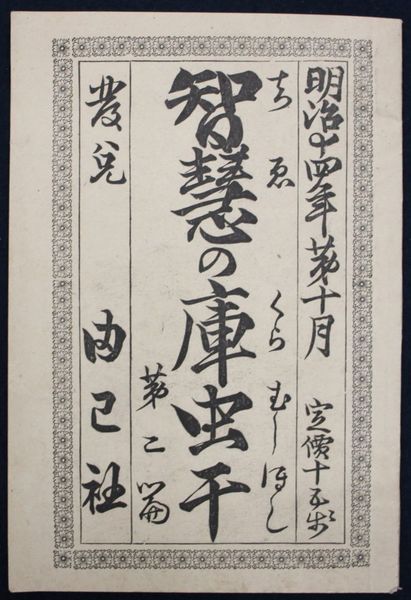 明治十四年第十月　定價十五銭
ちゑ　くら　むしほし
智慧の庫虫干
第二篇
發兌　由己社